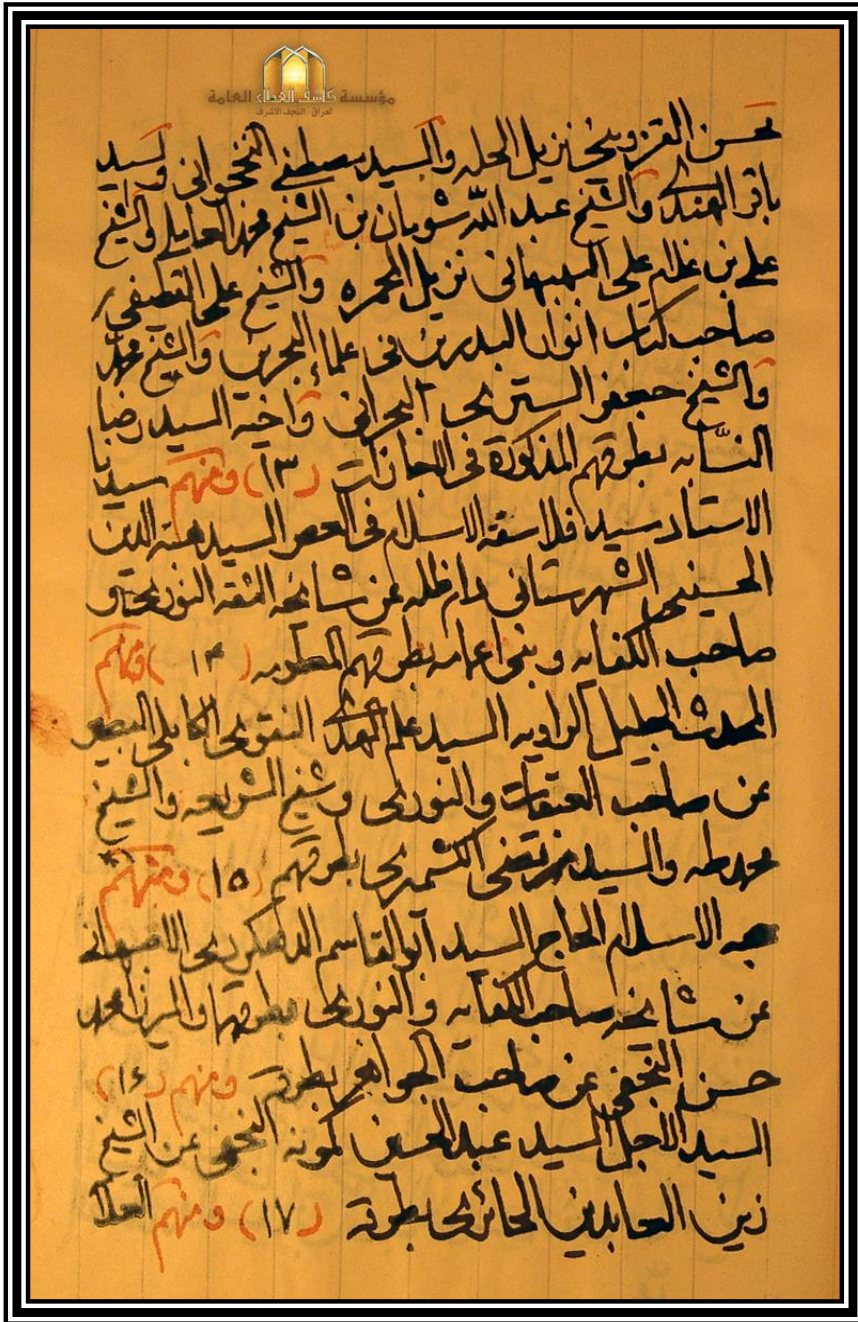 مؤسسة كاشف الغطاء العامة
العراق . النجف الاشرف
محسن القزويني نزيل الحله والسيد مصطفى النخجواني والسيد
باقر الهندي والشيخ عبد الله شوبان بن الشيخ محمد العاملي والشيخ
علي بن غلام علي البهبهاني نزيل المحمره والشيخ علي القطيفي
صاحب كتاب انوار البدرين في علماء البحرين والشيخ محمد
والشيخ جعفر الستري البحراني واخيه السيد رضا
النسّابه بطرقهم المذكورة في الاجازات (١٣) ومنهم سيدنا
الاستاد سيد فلاسفة الاسلام في العصر السيد هبة الدين
الحسيني الشهرستاني دام ظله عن مشايخه الثقه النوري
صاحب الكفايه وبني اعمامه بطرقهم المعلومه (١٤) ومنهم
المحدث الجليل الراويه السيد علم الهدى النقوي الكابلي البصير
عن صاحب العبقات والنوري وشيخ الشريعه والشيخ
محمد طه والسيد مرتضى الكشميري بطرقهم (١٥) ومنهم
حجه الاسلام الحاج السيد ابو القاسم الدهكردي الاصبهاني
عن مشايخه صاحب الكفايه والنوري بطرقهما والميرزا محمد
حسن النجفي عن صاحب الجواهر بطرقه ومنهم (١٦)
السيد الاجل السيد عبد الحسين كمونه النجفي عن الشيخ
زين العابدين الحائري بطرقه (١٧) ومنهم العلا